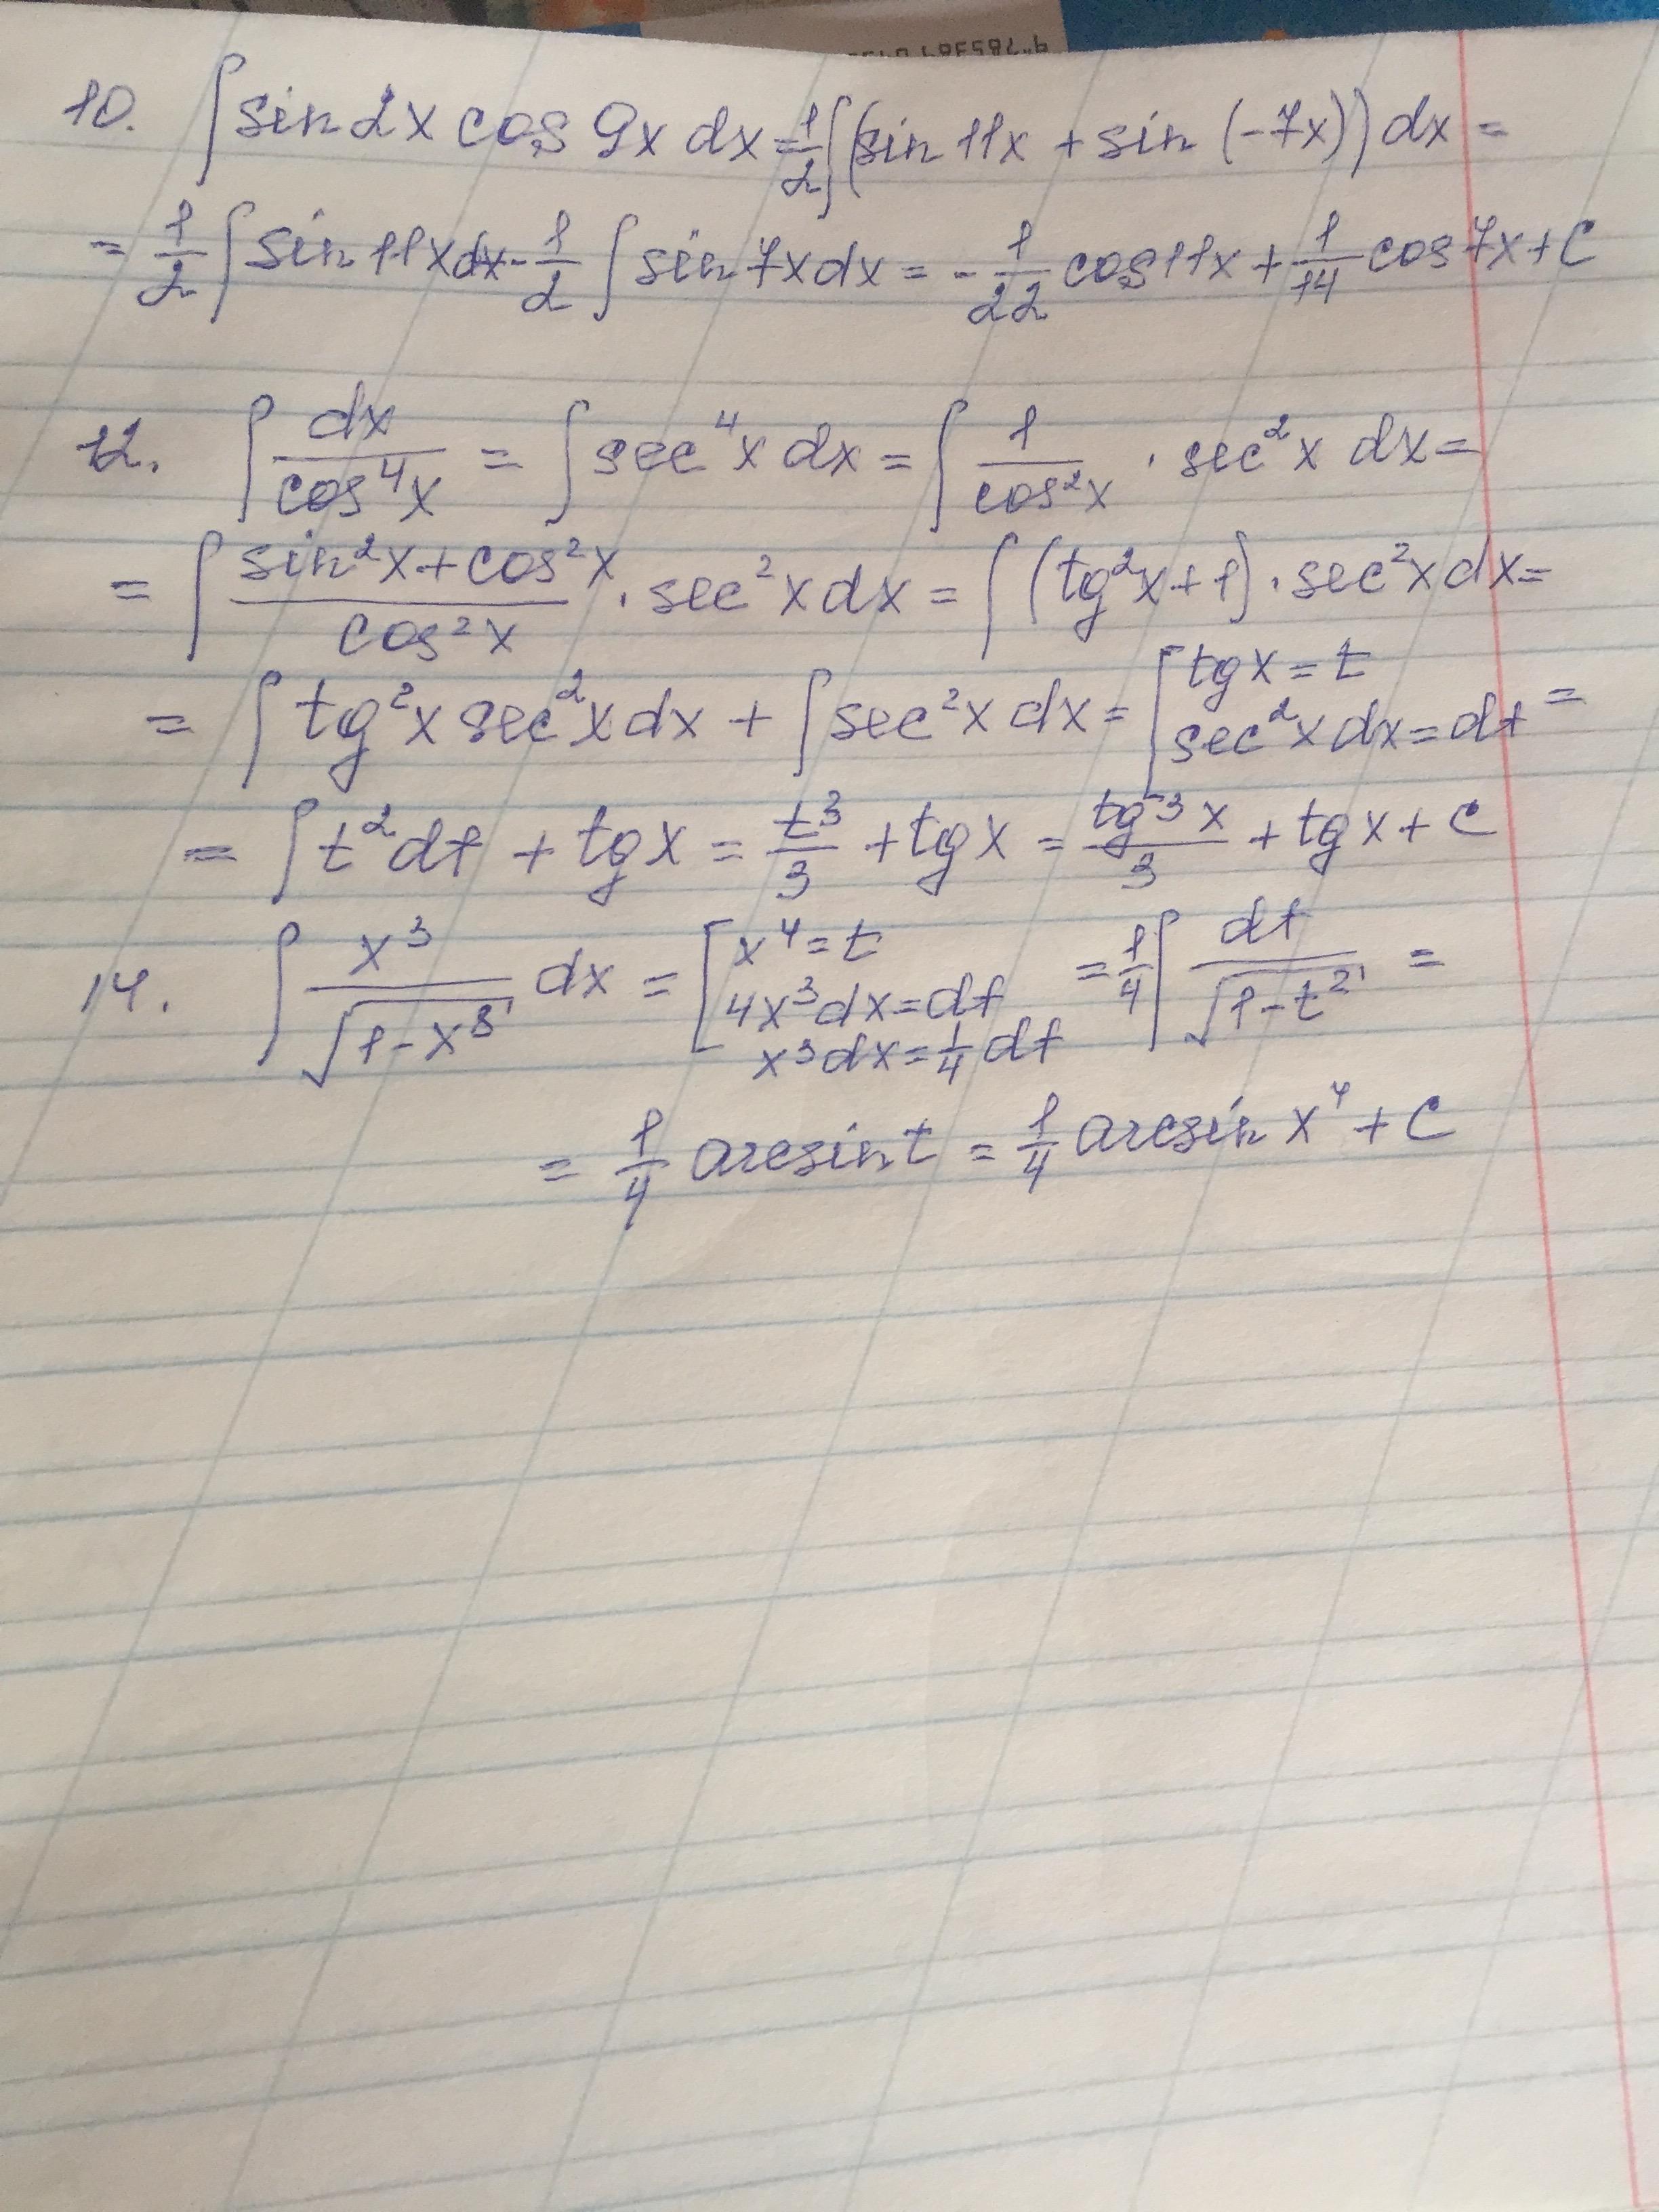 10. ∫ sin 2x cos 9x dx = 1/2 ∫ (sin 11x + sin (-7x)) dx =
= 1/2 ∫ sin 11x dx - 1/2 ∫ sin 7x dx = - 1/22 cos 11x + 1/14 cos 7x + C
12. ∫ dx/cos⁴x = ∫ sec⁴x dx = ∫ 1/cos²x · sec²x dx =
= ∫ (sin²x + cos²x)/cos²x · sec²x dx = ∫ (tg²x + 1) · sec²x dx =
= ∫ tg²x sec²x dx + ∫ sec²x dx = [ tgx = t
sec²x dx = dt =
= ∫ t² dt + tgx = t³/3 + tgx = tg³x/3 + tgx + C
14. ∫ x³/√(1-x⁸) dx = [ x⁴ = t
4x³dx = dt
x³dx = 1/4 dt
= 1/4 ∫ dt/√(1-t²) =
= 1/4 arcsin t = 1/4 arcsin x⁴ + C